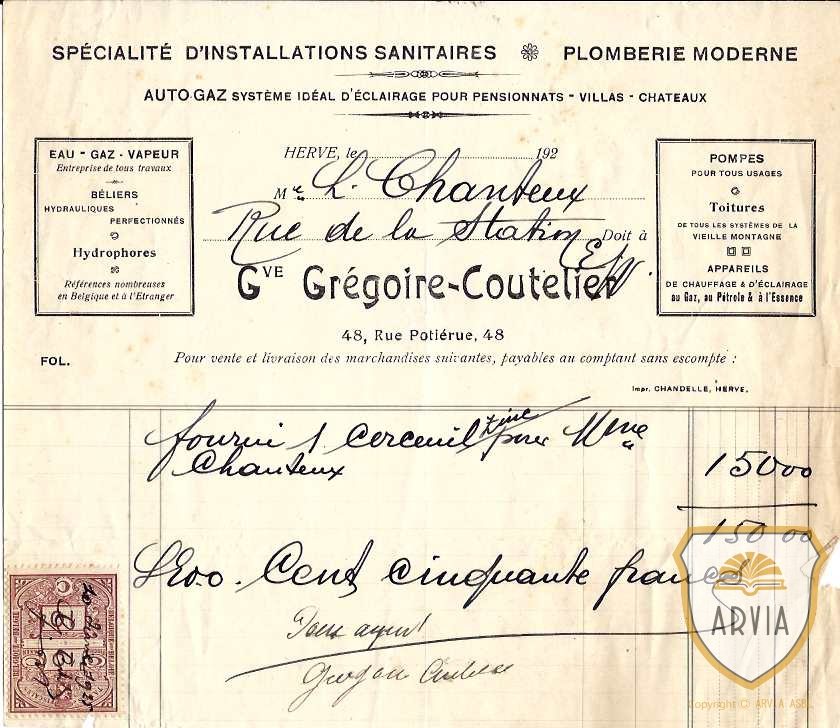 SPÉCIALITÉ D'INSTALLATIONS SANITAIRES PLOMBERIE MODERNE
AUTO-GAZ SYSTÈME IDÉAL D'ÉCLAIRAGE POUR PENSIONNATS - VILLAS - CHATEAUX
EAU - GAZ - VAPEUR
Entreprise de tous travaux
BÉLIERS
HYDRAULIQUES
PERFECTIONNÉS
Hydrophores
Références nombreuses
en Belgique et à l'Etranger
HERVE, le 192
M L. Chanteux
Rue de la Station E/V.
Doit à
GVE Grégoire-Coutelier
48, Rue Potiérue, 48
POMPES
POUR TOUS USAGES
Toitures
DE TOUS LES SYSTÈMES DE LA
VIEILLE MONTAGNE
APPAREILS
DE CHAUFFAGE & D'ÉCLAIRAGE
au Gaz, au Pétrole & à l'Essence
FOL.
Pour vente et livraison des marchandises suivantes, payables au comptant sans escompte :
Impr. CHANDELLE, HERVE.
fourni 1 cerceuil zinc pour Mme
Chanteux 150 00
150 00
Cent cinquante francs
Pour aquit
ARVIA
Copyright © ARVIA ASBL